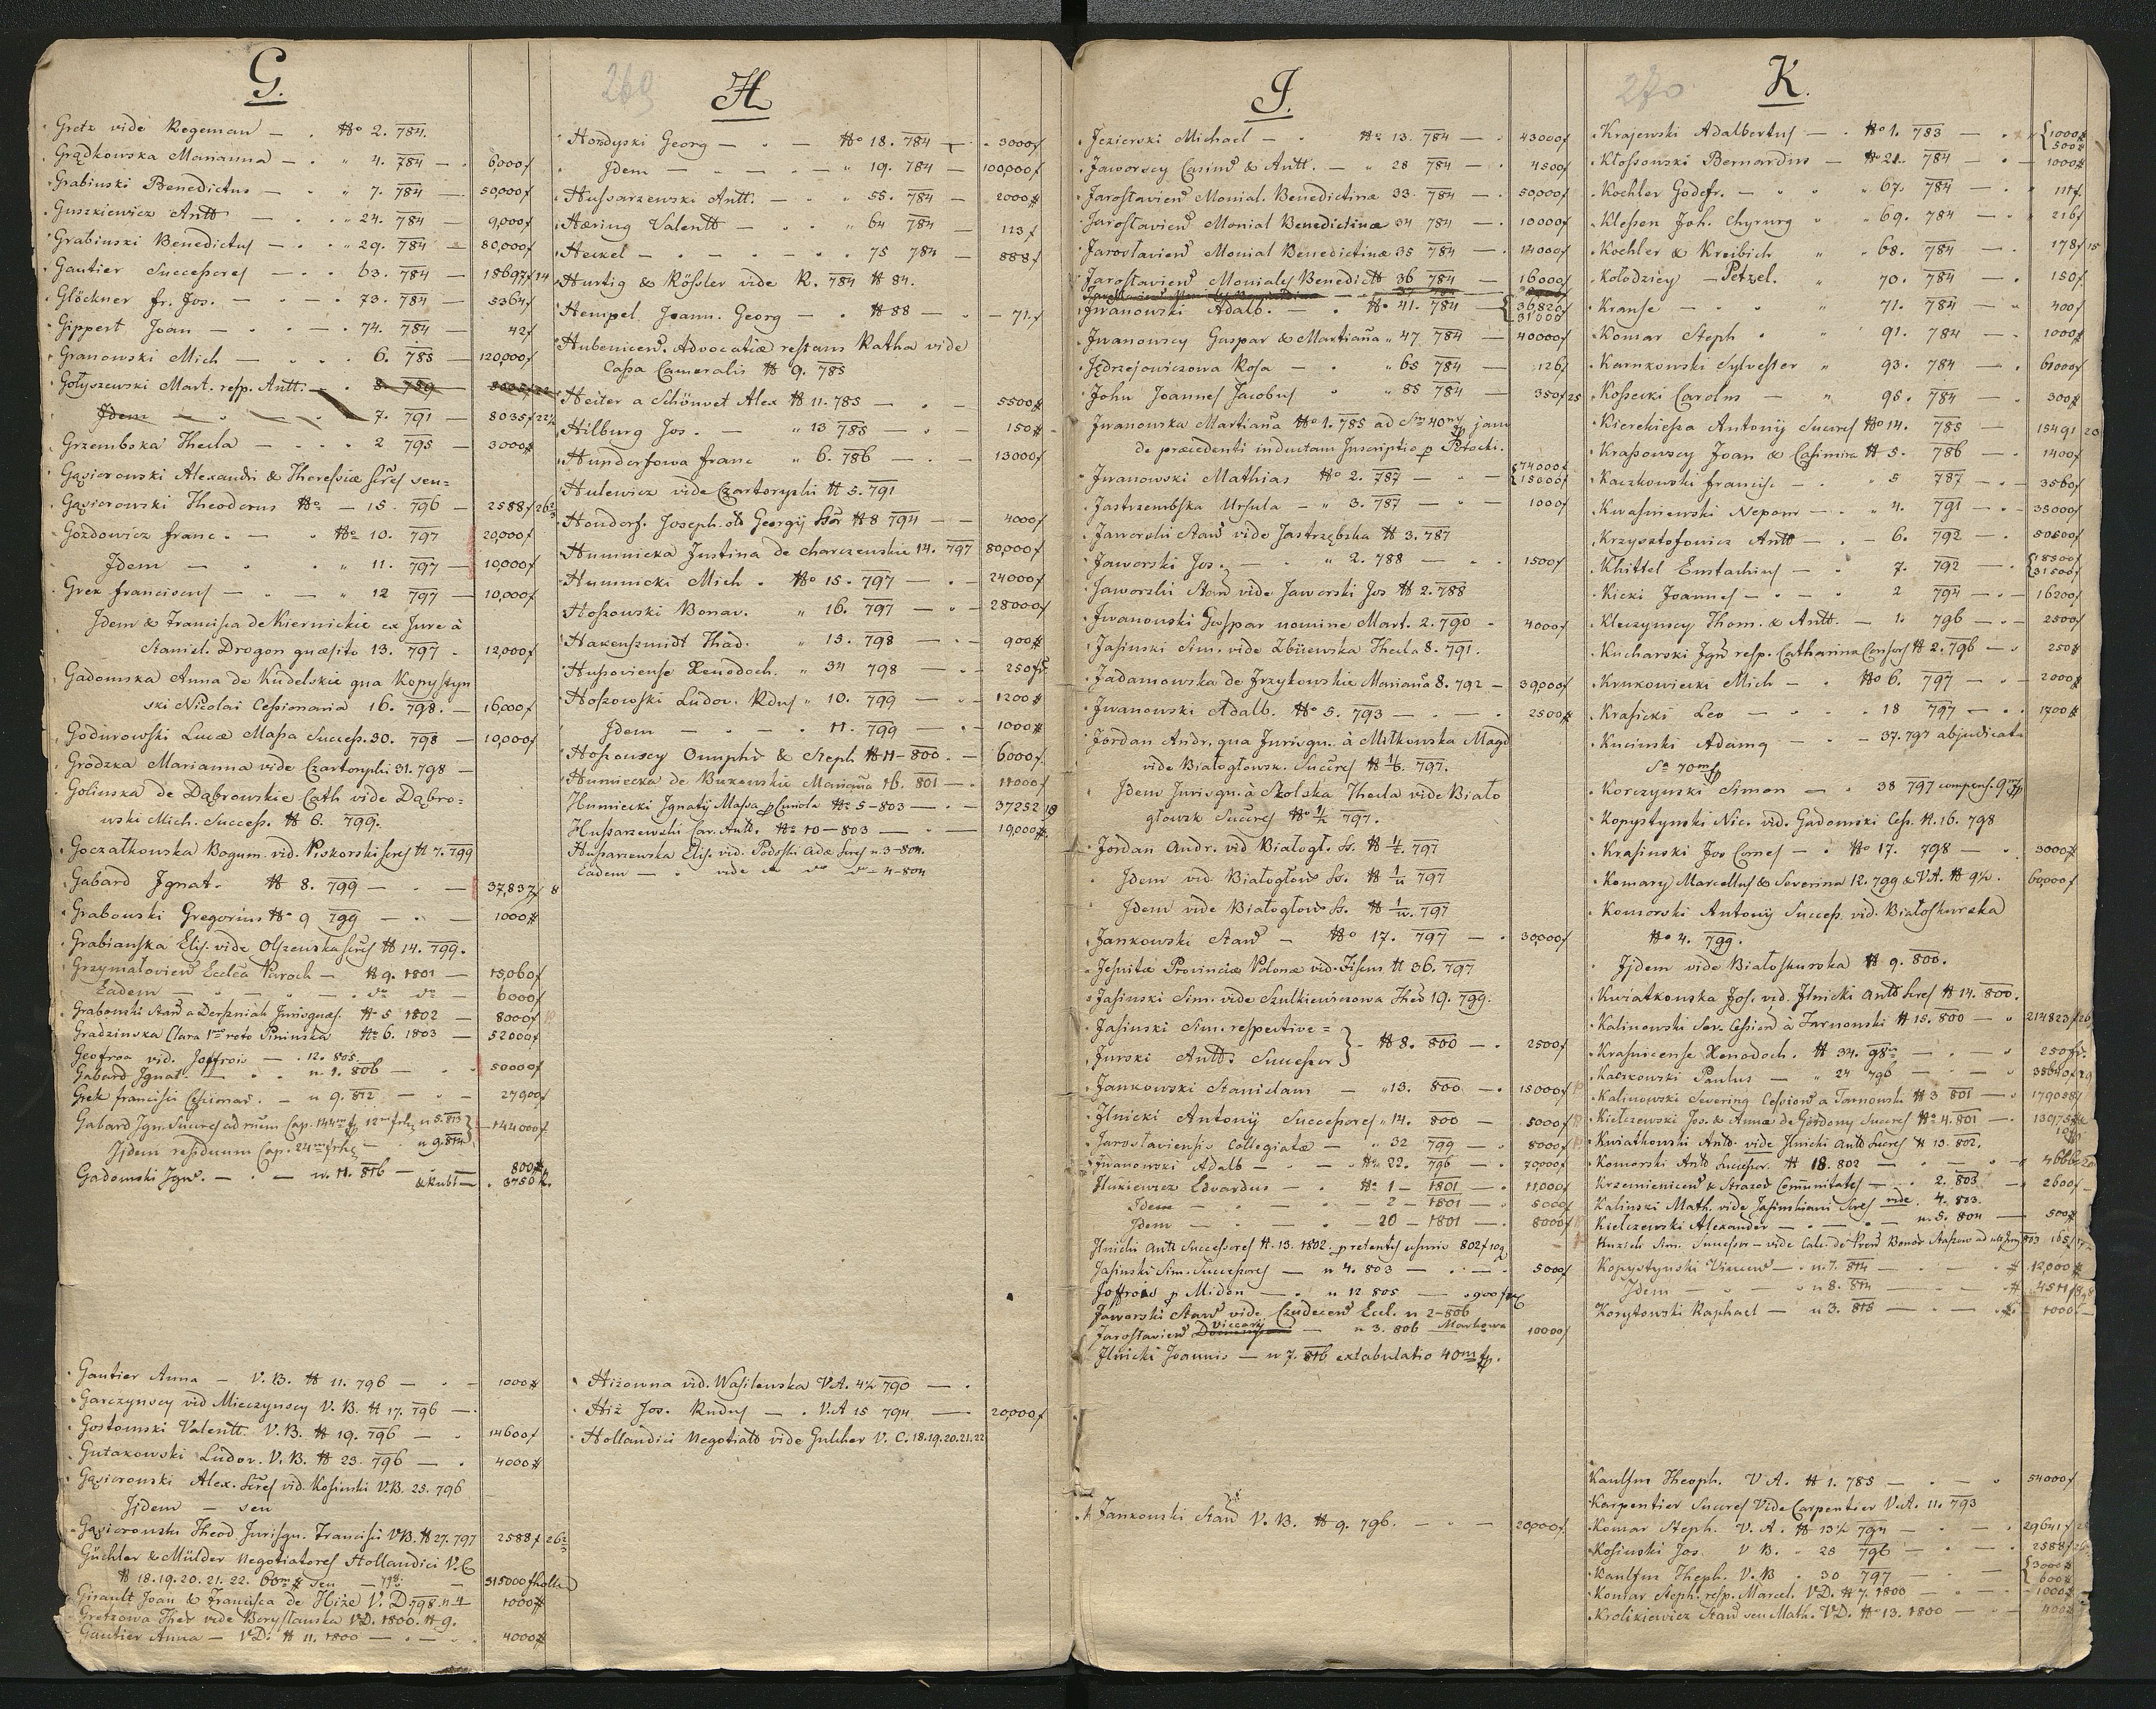 G.
Gretz vide Regeman — . No 2. 784.
Grądkowska Marianna — . " 4. 784 — . 6,000 f
Grabinski Benedictus — . " 7. 784 — 50,000 f
Guszkiewicz Antt — . " 24. 784 — 9,000 f
Grabinski Benedictus — . " 29. 784 — 80,000 f
Gautier Successores — . . 63. 784 — 18697 f 14
Glöckner fr. Jos. — . — . 73. 784 — 5364 f
Gippert Joan — . . — . 74. 784 — 42 f
Granowski Mich — . . . 6. 785 — 120,000 f
Gołyszewski Mart. resp. Antt. — . 8 789
Idem — 7. 791 — 8035 f 22½
Grzembska Thecla — . . . 2 795 — 3000 #
Gąsiorowski Alexandri & Theressiæ sures seu=
Gąsiorowski Theodorus No — 15. 796 — 2588 f 26⅔
Gozdowicz franc. — . No 10. 797 20,000 f
Idem — . . . " 11. 797 — 10,000 f
Grek franciscus — . — " 12 797 — 10,000 f
Idem & Francisca de Kiernickie ex Jure à
Stanisl. Drogon quæsito 13. 797 . 12,000 f
Gadomska Anna de Kudelskie qua Kopystyn
ski Nicolai Cessionaria 16. 798. — 16,000 f
Godurowski Lucæ Massa Success. 30. 798 — 10,000 f
Grodzka Marianna vide Czartoryski 31. 798 —
Golinska de Dąbrowskie Cath vide Dąbro=
wski Mich. Success. # 6. 799.
Goczałkowska Bogum. vid. Piskorski sures # 7. 799
Gabard Ignat. # 8. 799 — . — 37,837 f 8
Grabowski Gregorius No 9 799 — . — 1000 #
Grabianska Elis. vide Olszewska sures # 14. 799.
Grzymałovien Ecclia Paroch — # 9. 1801 — 15,060 f
Eadem — . . — . do do — 6000 f
Grabowski Stan a Derszniak Jurisquæs. No 5 1802 — 8000 f
Gradzinska Clara 1mo voto Pininska No 6. 1803 — 52000 f
Geofroa vid. Joffrois — . 12. 805
Gabard Ignat. — . . n. 1. 806 — . 50000 f
Grek francisci Cessionar. — n 9. 812 — . — 27900 f
Gabard Ign. Sucures ad rnem Cap. 144m f 12m frhz n 5. 813 144000 f
Ijdem residuum Cap. 24m frhz — . n 9. 814
Gadomski Ign. — . — n. 11. 816 — 800 #
& Rubl — . 3750 R.
Gautier Anna — V. B. # 11. 796 — . — 1000 #
Garczynscy vid Mieczynscy V. B. # 17. 796 — .
Gostomski Valentt. V. B. # 19. 796 — . 14600 f
Gutakowski Ludov. V. B. # 23. 796 — . 4000 #
Gąsiorowski Alex. Sures vid. Kosinski V.B. 25. 796
Ijdem — seu
Gąsiorowski Theod Jurisqu. Francisci V.B. # 27. 797 2588 f 26⅔
Güchler & Mülder Negotiatores Hollandici V.C
# 18. 19. 20. 21. 22. 60m # seu — 798. — 315000 f holld
Girault Joan & Francisca de Hiże V. D. 798. n 4 1000 #
Gretzowa Ther vide Boryslawska V.D. 1800. # 9.
Gautier Anna — V.D. # 11. 1800 — . — . . 4000 #
269
H
Hordyski Georg — . — No 18. 784 — . 3000 f
Idem — . — . — " 19. 784 — 100,000 f
Hussarzewski Antt. — . . " 55. 784 — 2000 #
Hæring Valentt — . . " 64 784 — 113 f
Heckel — . — . — . . 75 784 — 888 f
Hurtig & Rössler vide R. 784 # 84.
Hempel Joann. Georg — . # 88 — . — 71 f
Hubenicen. Advocatiæ restans Ratha vide
Cassa Cameralis # 9. 785
Heiter a Schönwet Alex # 11. 785 — . — 5500 #
Hilburg Jos. — . " 13 785 — . — 150 #
Hunderfowa franc " 6. 786 — . — 13000 f
Hulewicz vide Czartoryski # 5. 791
Hondorf. Joseph. olo Georgij ssor # 8 794 — 4000 f
Humnicka Justina de Charczewskie 14. 797 80,000 f
Humnicki Mich . No 15. 797 — . — 24000 f
Hoszowski Bonav. " 16. 797 — . — 28000 f
Hakenszmidt Thad. " 15. 798 — . — 900 #
Hussoviense Xenodoch. " 34 798 — . — 250 fr
Hoszowski Ludov. Rdus " 10. 799 — . — 1200 #
Idem — . — . 11. 799 — . — 1000 #
Hoszowscy Onuphr & Steph # 11 - 800 . — 6000 f.
Humiecka de Bukowskie Marianna 16. 801 — . — 11000 f
Humiecki Ignatij Massa p Curiola No 5 - 803 — . — 37252 18
Hussarzewski Car. Antt. No 10 - 803 — . — 19,000 #
Hussarzewska Elis. vid. Podoski Adæ sures n. 3 - 804.
Eadem — . vide do do do 4 - 804
Hiżowna vid. Wasilewska V.A. 4½ 790 — .
Hiż Jos. Rudus — . V.A 15 794 — . 20,000 f
Hollandici Negotiato vide Gulcher V. C. 18. 19. 20. 21. 22
J.
Jezierski Michael — . No 13. 784 — . 43000 f
Jaworscy Casim & Antt. — " 28 784 — . 4500 f
Jaroslavien Monial. Benedictinæ 33. 784 — . 50,000 f
Jaroslavien Monial Benedictinæ 34 784 — . 10000 f
Jaroslavien Monial Benedictinæ 35 784 — . 14000 f
Jaroslavien Moniales Benedict # 36 784 — 16000 f
Iwanowski Adalb. — . No 41. 784 — { 36,826 f
31000
Iwanowscy Gaspar & Martiana " 47. 784 — 40000 f
Jędrzejowiczowa Rosa — . " 65 784 — 126 f
John Joannes Jacobus . " 85 784 — . 350 f 25
Iwanowska Martiana No 1. 785 ad Sm 40m f jam
de præcedenti inductam Inscriptio p Potocki.
Iwanowski Mathias No 2. 787 — . — { 74000 f
15000 f
Jastrzembska Ursula — " 3. 787 — . — 1000 f
Jaworski Stan vide Jastrzębska # 3. 787
Jaworski Jos. — . " 2. 788 — . . 1500 f
Jaworski Stan vide Jaworski Jos # 2. 788
Iwanowski Gaspar nomine Mart. 2. 790 . 4000 f
Jasinski Sim. vide Zbiżewska Thecla 8. 791.
Jadamowska de Jrzykowskie Marianna 8. 792 — 39,000 f
Iwanowski Adalb. No 5. 793 — . — . 2500 #
Jordan Andr. qua Jurisqu. à Miłkowska Magd
vide Białogłowsk. Sucures # 1/6. 797.
Idem Jurisqu. à Skolska Thecla vide Biało
głowsk Sucures No 797.
Jordan Andr. vid Białogł. Ss. # 797
Idem vid. Białogłow Ss. # 797
Idem vide Białogłow Ss. # 797
Jankowski Stan — No 17. 797 — . 30,000 f
Jesuitæ Provinciæ Polonæ vid. Fiskus # 36. 797
Jasinski Sim. vide Szulkiewiczowa Thed 19. 799.
Jasinski Sim. respective =
Jurski Antt. Successor } - # 8. 800 — . 2500 f
Jankowski Stanislaus — " 13. 800 — . 15000 f
Ilnicki Antonij Successores " 14. 800 — 5000 f
Jaroslaviensis Collegiatæ — " 32 799 — . 8000 f
Iwanowski Adalb — . — No 22. 796 — . 70,000 f
Ilukiewicz Edvardus — . No 1 — 1801 — . 11,000 f
Idem — . — . — 2 — 1801 — 5000 f
Idem — . — . — 20 — 1801 — 8000 f
Ilnicki Antt Successores # 13. 1802. pretentis usuris 802 f 10
Jasinski Sim. Successores — n 4. 803 — . — . 5000 f
Joffrois p Midon — . n 12 805 — 900
Jaworski Stan vide Czudecen Eccl. n 2 - 806
Jaroslavien Viccarij — n 3. 806 Markowa 10000 f
Ilnicki Joannis — n 7. 816 extabulatio 40m f.
Jankowski Stan V. B. # 9. 796. — . — 20,000 f
270
K.
Krajewski Adalbertus — . No 1. 783 — . { 1000 #
500 #
Kłossowski Bernardus — No 21. 784 — . — 1000 #
Kochler Godefr. — . . " 67. 784 — . 111 f.
Klessen Joh. Chyrurg " " 69. 784 — . 216 f
Kochler & Kreibich " " 68. 784 — . 178 f 15
Kolodzicy — Petzel. " 70. 784 — . 150 f.
Kranse — . . " 71. 784 — . 400 f
Komar Steph . " 91. 784 — . 1000 #
Karnkowski Sylvester " 93. 784 — . 61000 f
Kossecki Carolus — " 95. 784 — . 300 #
Kierekiesza Antonij Sucures No 14. 785 — . 15491 20
Krassowscy Joan & Casimira # 5. 786 — . 1400 f
Kaczkowski francisc. — . " 5 787 — . — 3560 f
Kwasniewski Nepom — . " 4. 791 — . — 35000 f
Krzysztofowicz Antt — . — 6. 792 — . — 50500 f
Khittel Eustachius — . 7. 792 — . { 18500 f
31500 f
Kicki Joannes — . — . 2 794 — . — 16200 f
Kleczynscy Thom. & Antt. — 1. 796 — . — 2500 f
Kucharski Ign resp. Catharina Consors # 2. 796 — . 250 #
Krukowiecki Mich — . No 6. 797 — . — 2000 #
Krasicki Leo — . — . . 18 797 — . . 1700 #
Kucinski Adamg — . — 37. 797 abjudicat
Sa 70m f
Korczynski Simon — . 38 797 compens. 9m f
Kopystynski Nic. vid. Gadomski Cess. # 16. 798
Krasinski Jos Comes — . No 17. 798 — . 3000 #
Komary Marcellus & Severina 12. 799 & V.A. # 9½. 60,000 f
Komorski Antonij Success. vid. Białoskurska
No 4. 799.
Ijdem vide Białoskurska # 9. 800.
Kwiatkowska Jos. vid. Ilnicki Antt sures # 14. 800.
Kalinowski Sev. Cession à Tarnowski # 15. 800 — . 214823 f 26
Krasnicense Xenodoch. # 34. 98 — . 250 fr.
Kaczkowski Paulus — " 24 796 — . — . 35640 f 29
Kalinowski Severing Cession a Tarnowski # 3 801 — . 179058
Kiełczewski Jos. & Annæ de Gordony Sucures No 4. 801 — . 130175
Kwiatkowski Antt. vide Ilnicki Antt Sucures # 13. 802.
Komorski Antt Successor. # 18. 802 — . — . 4666 20
Krzemienicen & Strazow Comunitates — . 2. 803 — . 2600 f
Kalinski Math. vide Jasinskiani Sures vide 4. 803.
Kiełczewski Alexander — . — . — n. 5. 804 — 500 #
Kuzich Sim. Successor — vide Cale. de Prov Bonor Staszow ad 803 165 f
Kopystynski Vincen — . n. 7. 814 — . — . # 12,000 #
Idem — . — . n 8. 814 — . — # 4511
Korytowski Raphael — n 3. 815 — . — . 1000
Kaulfus Theoph. V. A. # 1. 785 — . — . 54000 f
Karpentier Sucures Vide Carpentier V.A. 11. 793
Komar Steph. V. A. # 13½ 794 — . — . 29641 f
Kosinski Jos V B. . 25 796 — . — . 2588 f 26
Kaulfus Theph. V. B . 30 797 — . { 3000 #
600 #
Komar Steph. resp. Marcel. V.D. # 7. 1800 — . — 1000 #
Krolikiewicz Stan seu Math. V.D. No 13. 1800 — . 400 #